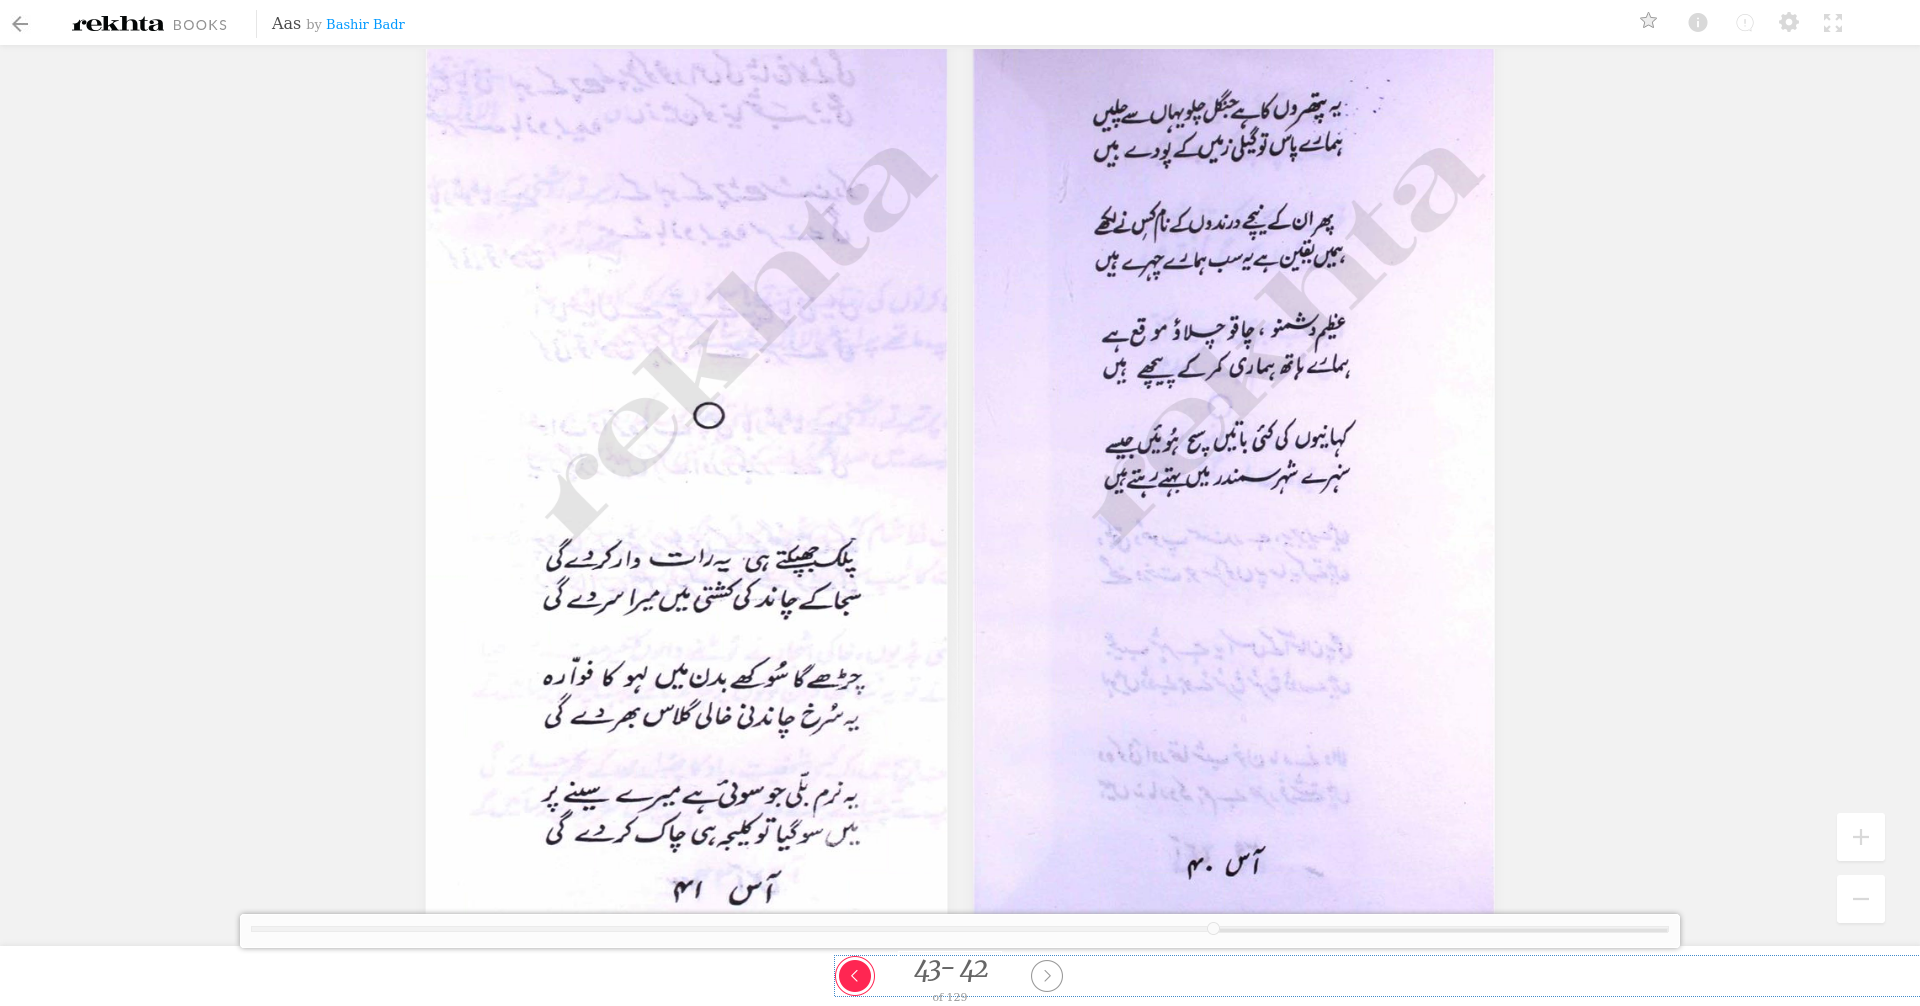 rekhta BOOKS Aas by Bashir Badr
یہ پتھروں کا ہے جنگل چلو یہاں سے چلیں
ہمارے پاس تو گیلی زمیں کے پودے ہیں
پھر ان کے نیچے درندوں کے نام کس نے لکھے
ہمیں یقین ہے یہ سب ہمارے چہرے ہیں
عظیم دشمنو، چاقو چلاؤ موقع ہے
ہمارے ہاتھ ہماری کمر کے پیچھے ہیں
کہانیوں کی کئی باتیں سچ ہوئیں جیسے
سنہرے شہر سمندر میں بہتے رہتے ہیں
آس ۴۰
rekhta
پلک جھپکتے ہی یہ رات وار کر دے گی
سجا کے چاند کی کشتی میں میرا سر دے گی
چڑھے گا سُوکھے بدن میں لہو کا فوّارہ
یہ سُرخ چاندنی خالی گلاس بھر دے گی
یہ نرم بلّی جو سوئی ہے میرے سینے پر
میں سو گیا تو کلیجہ ہی چاک کر دے گی
آس ۴۱
rekhta
43- 42
of 129